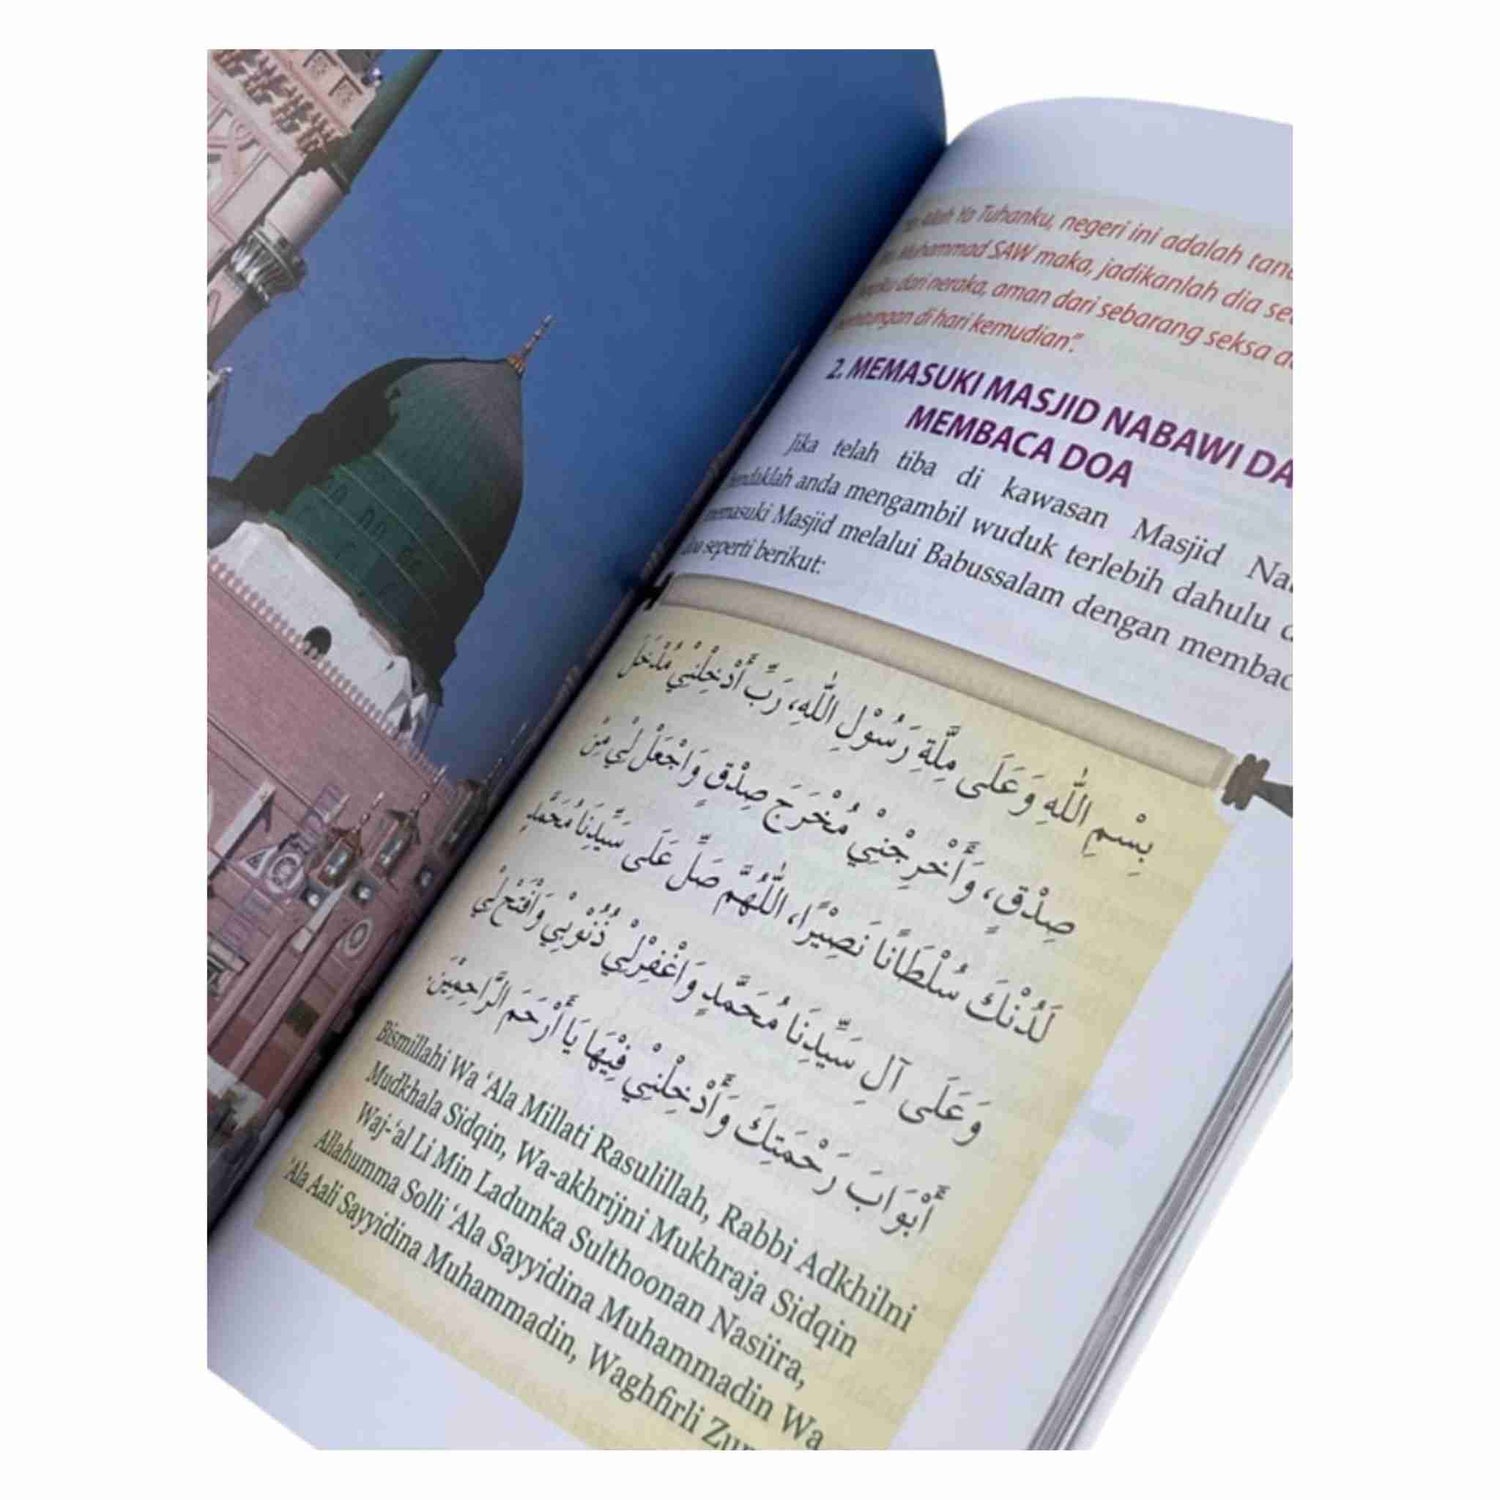 Allah Ya Tuhanku, negeri ini adalah
Muhammad SAW maka, jadikanlah dia
dari neraka, aman dari sebarang seksa
di hari kemudian".
2. MEMASUKI MASJID NABAWI
MEMBACA DOA
Jika telah tiba di kawasan Masjid
hendaklah anda mengambil wuduk terlebih dahulu
memasuki Masjid melalui Babussalam dengan
doa seperti berikut:
بِسْمِ اللّٰهِ وَعَلَى مِلَّةِ رَسُوْلِ اللّٰهِ، رَبِّ أَدْخِلْنِيْ مُدْخَلَ
صِدْقٍ، وَأَخْرِجْنِيْ مُخْرَجَ صِدْقٍ وَاجْعَلْ لِيْ مِنْ
لَدُنْكَ سُلْطَانًا نَصِيْرًا، اللّٰهُمَّ صَلِّ عَلَى سَيِّدِنَا مُحَمَّدٍ
وَعَلَى آلِ سَيِّدِنَا مُحَمَّدٍ وَاغْفِرْلِيْ ذُنُوْبِيْ وَافْتَحْ لِيْ
أَبْوَابَ رَحْمَتِكَ وَأَدْخِلْنِيْ فِيْهَا يَا أَرْحَمَ الرَّاحِمِيْنَ.
Bismillahi Wa 'Ala Millati Rasulillah, Rabbi Adkhilni
Mudkhala Sidqin, Wa-akhrijni Mukhraja Sidqin
Waj-'al Li Min Ladunka Sulthoonan Nasiira,
Allahumma Solli 'Ala Sayyidina Muhammadin Wa
'Ala Aali Sayyidina Muhammadin, Waghfirli